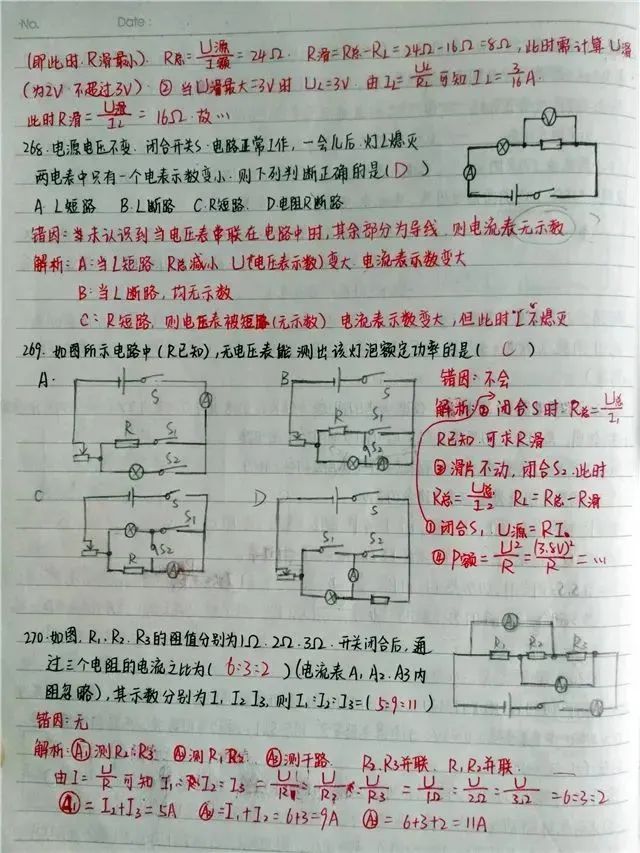 No.
Date:
(即此时R滑最小). R总=U源/I额=24Ω. R滑=R总-RL=24Ω-16Ω=8Ω, 此时需计算U滑
(为2V 不超过3V) ② 当U滑最大=3V时 UL=3V. 由IL=UL/RL可知IL=3/16A.
此时R滑=U滑/IL=16Ω. 故…
268. 电源电压不变. 闭合开关S. 电路正常工作, 一会儿后. 灯L熄灭
两电表中只有一个电表示数变小. 则下列判断正确的是(D)
A. L短路 B. L断路 C. R短路. D. 电阻R断路
错因: 未认识到当电压表串联在电路中时, 其余部分为导线. 则电流表无示数
解析: A: 当L短路. R总减小 U(电压表示数)变大. 电流表示数变大
B: 当L断路, 均无示数
C: R短路, 则电压表被短路(无示数) 电流表示数变大, 但此时L不熄灭
269. 如图所示电路中(R已知), 无电压表能测出该灯泡额定功率的是(C)
A.
B
C
D
S
S
S
S
A
R
S1
S2
R
S1
S2
A
S1
S2
R
A
S1
S2
A
错因: 不会
解析: ② 闭合S时. R总=U总/I1
R已知. 可求R滑
③ 滑片不动, 闭合S2. 此时
R总=U总/I2 RL=R总-R滑
① 闭合S1. U源=RI。
④ P额=U²/R=(3.8V)²/R=…
270. 如图. R1. R2. R3的阻值分别为1Ω. 2Ω. 3Ω. 开关闭合后, 通
过三个电阻的电流之比为(6:3:2)(电流表A1, A2. A3内
阻忽略), 其示数分别为I1 I2 I3, 则I1:I2:I3=(5:9:11)
R1
R2
R3
错因: 无
解析: A1测R2+R3 A2测R1, R2 A3测干路. R2. R3并联. R1, R2并联.
由I=U/R可知I1:I2:I3=U/R1:U/R2:U/R3=U/1Ω:U/2Ω:U/3Ω=6:3:2
A1=I2+I3=5A A2=I1+I2=6+3=9A A3=6+3+2=11A